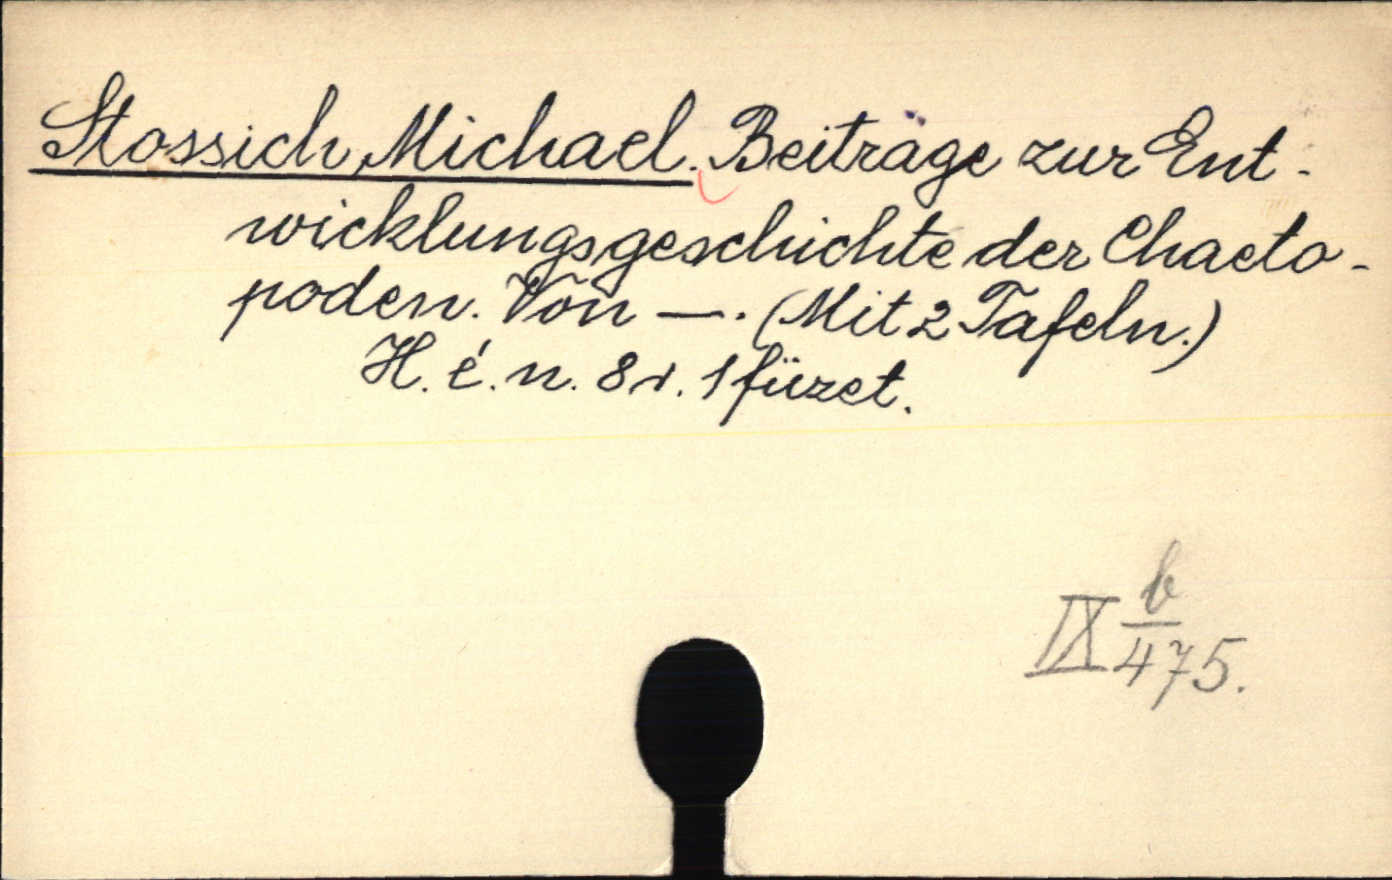 Stossich, Michael. Beiträge zur Ent-
wicklungsgeschichte der Chaeto-
poden. Von —. (Mit 2 Tafeln.)
H. é. n. 8 r. 1 füzet.
IX b/475.